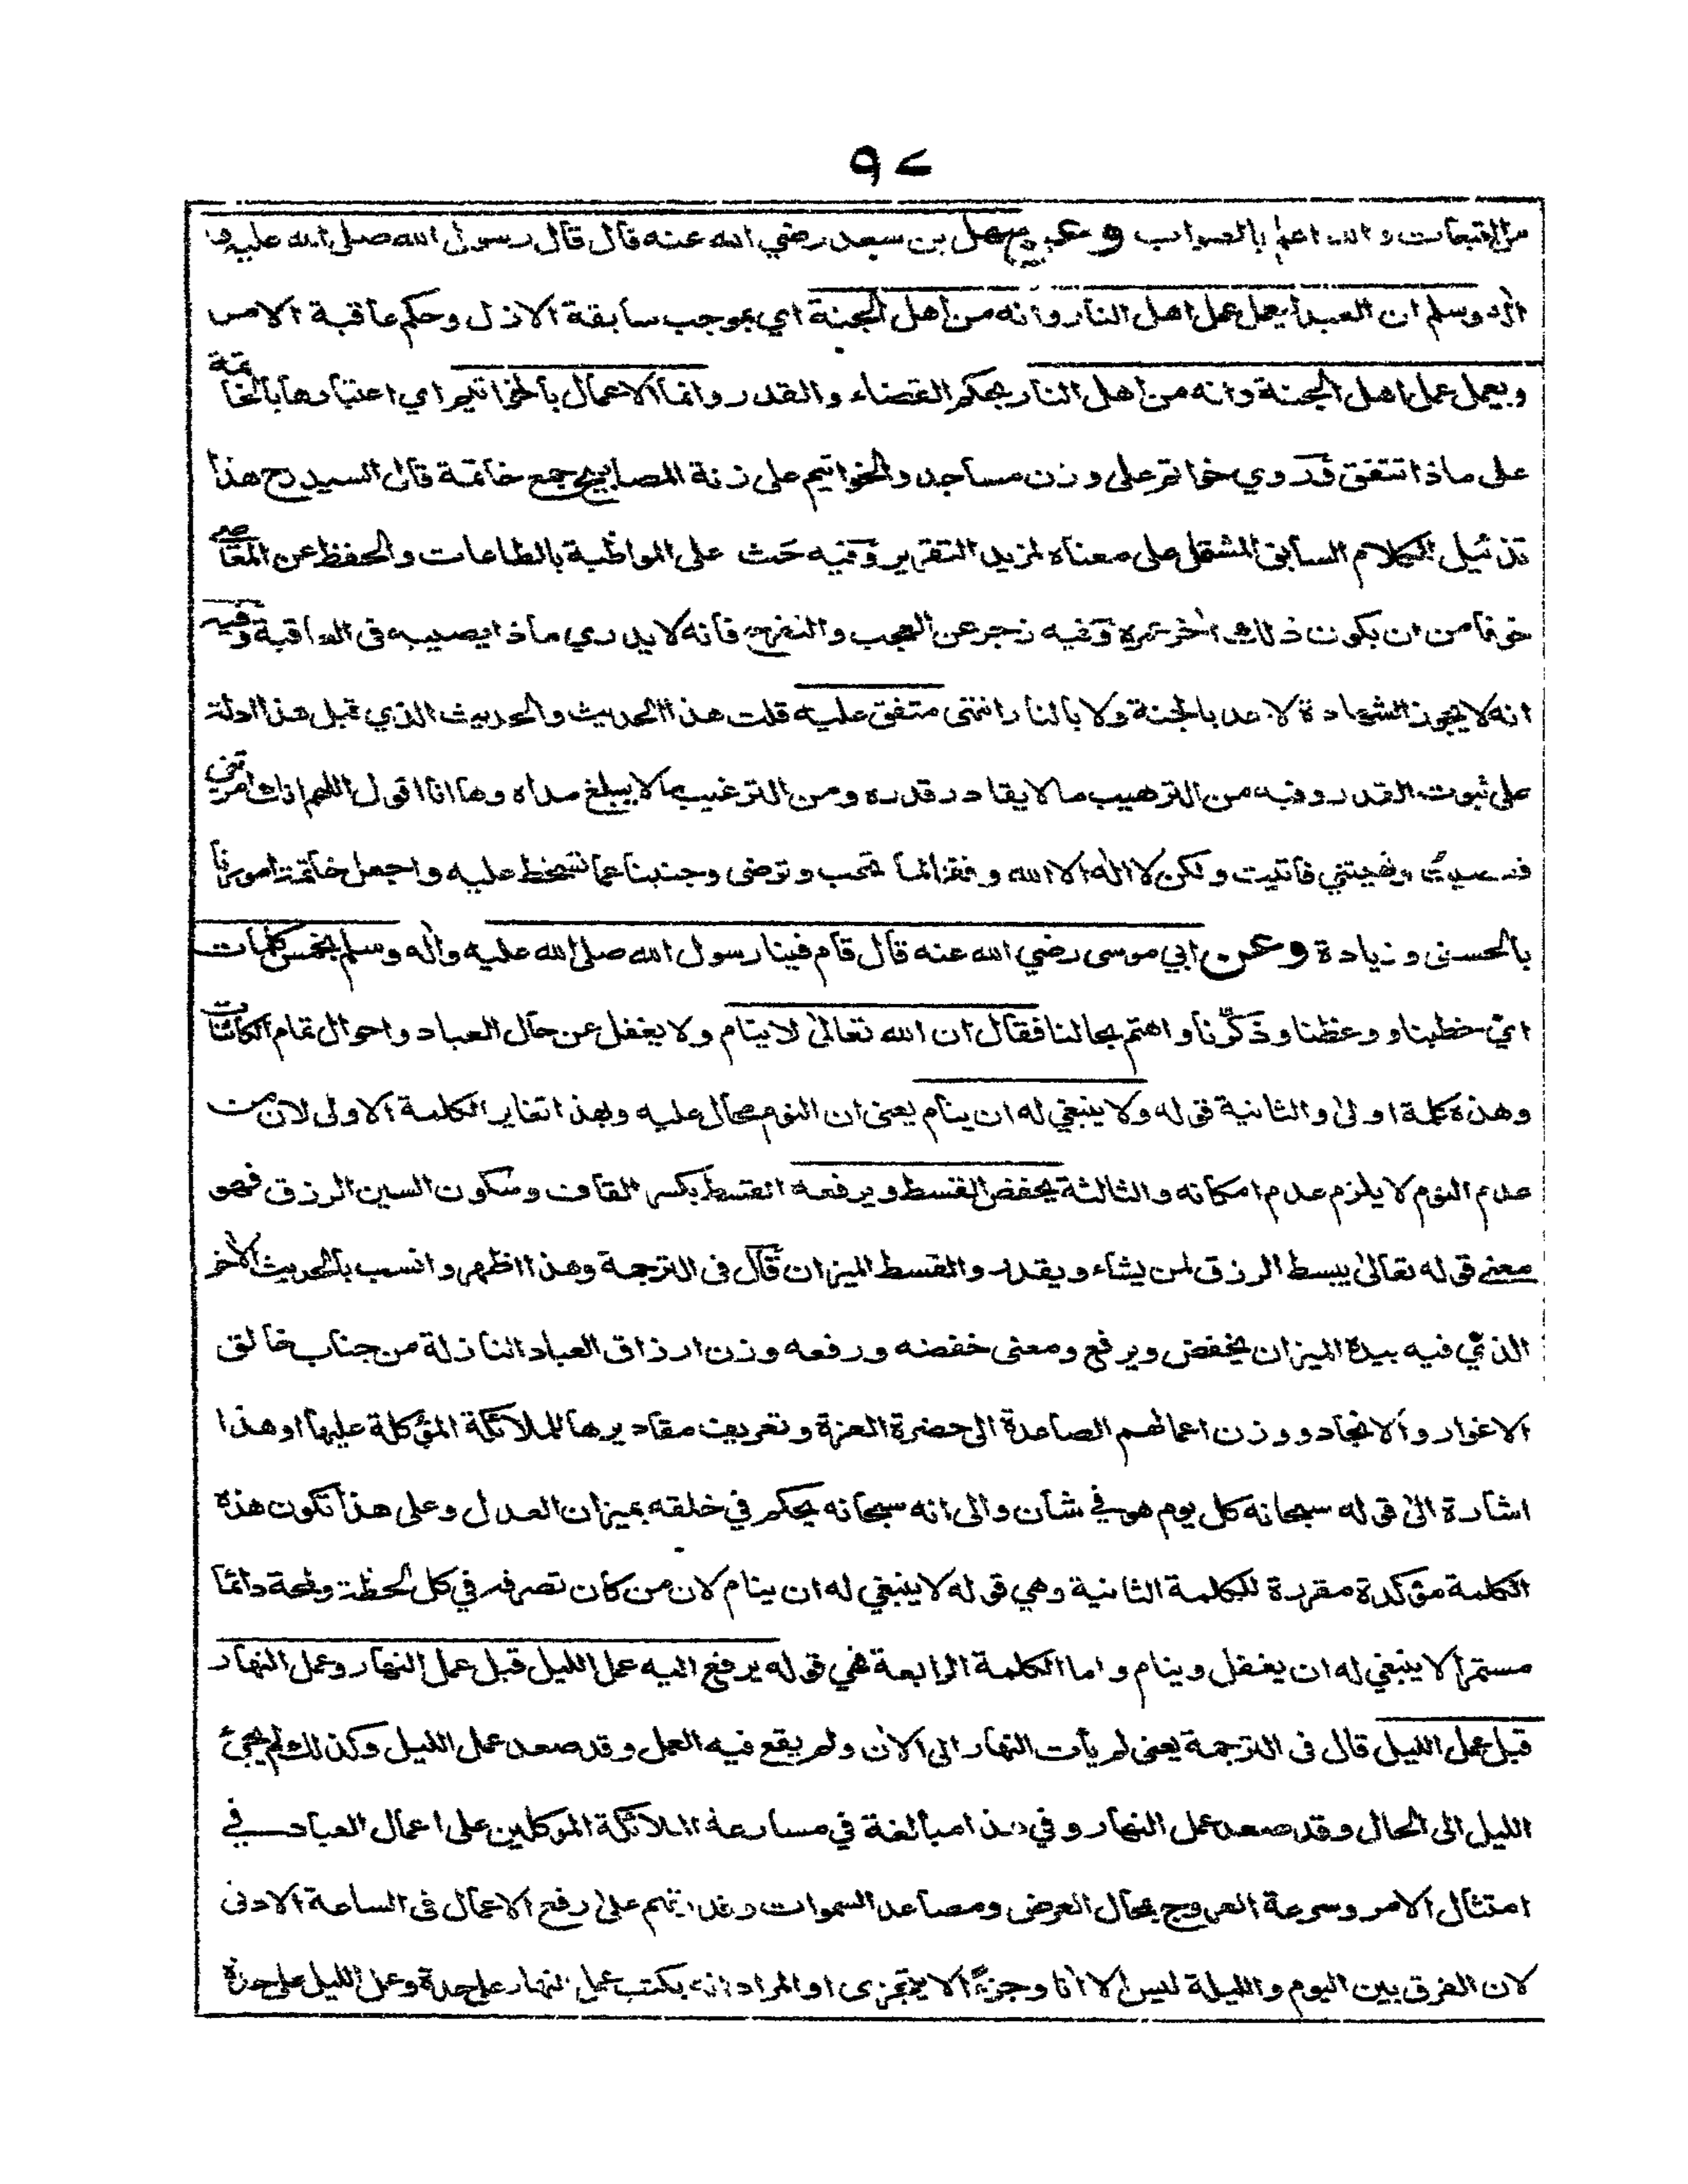 ٩٧
من القبعات والله اعلم بالصواب وعن سهل بن سعد رضي الله عنه قال قال رسول الله صلى الله عليه و
اله وسلم ان العبد ليعمل عمل اهل النار وانه من اهل الجنة اي بموجب سابقة الازل وحكم عاقبة الامر
ويعمل عمل اهل الجنة وانه من اهل النار بحكم القضاء والقدر وانما الاعمال بالخواتيم اي اعتبارها بالخاتمة
على ماذا تتفق وروي خواتم على وزن مساجد والخواتيم على زنة المصابيح جمع خاتمة قال السيد رح هذا
تذئيل الكلام السابق المشتمل على معناه لمزيد التقرير وفيه حث على المواظبة بالطاعات والحفظ عن المعاصي
خوفا من ان يكون ذلك اخر عمره وفيه زجر عن العجب والتفرح فانه لا يدري ماذا يصيبه فى العاقبة وفيه
انه لا يجوز الشهادة لاحد بالجنة ولا بالنار انتهى متفق عليه قلت هذا الحديث والحديث الذي قبل هذا ادلة
على ثبوت القدر وفيه من الترهيب ما لا يقادر قدره ومن الترغيب ما لا يبلغ مداه وها انا اقول اللهم انك امرتني
فعصيت ونهيتني فاتيت ولكن لا اله الا الله وفقنا لما تحب وترضى وجنبنا عما تسخط عليه واجعل خاتمة امورنا
بالحسنى وزيادة وعن ابي موسى رضي الله عنه قال قام فينا رسول الله صلى الله عليه واله وسلم بخمس كلمات
اي خطبنا ووعظنا وذكّرنا واهتم بحالنا فقال ان الله تعالى لا ينام ولا يغفل عن حال العباد واحوال تمام الكائنات
وهذه كلمة اولى والثانية قوله ولا ينبغي له ان ينام يعنى ان النوم محال عليه وبهذا تغاير الكلمة الاولى لان من
عدم النوم لا يلزم عدم امكانه والثالثة يخفض القسط ويرفعه القسط بكسر القاف وسكون السين الرزق فهو
معنى قوله تعالى يبسط الرزق لمن يشاء ويقدر والقسط الميزان قال فى الترجمة وهذا اظهر وانسب بالحديث الاخر
الذي فيه بيده الميزان يخفض ويرفع ومعنى خفضه ورفعه وزن ارزاق العباد النازلة من جناب خالق
الاغوار والانجاد ووزن اعمالهم الصاعدة الى حضرة العزة وتعريف مقاديرها للملائكة المؤكلة عليها او هذا
اشارة الى قوله سبحانه كل يوم هو في شأن والى انه سبحانه يحكم في خلقه بميزان العدل وعلى هذا تكون هذه
الكلمة مؤكدة مقررة للكلمة الثانية وهي قوله لا ينبغي له ان ينام لان من كان تصرفه في كل لحظة ولمحة دائما
مستمرا لا ينبغي له ان يغفل وينام واما الكلمة الرابعة فهي قوله يرفع اليه عمل الليل قبل عمل النهار وعمل النهار
قبل عمل الليل قال فى الترجمة يعنى لم يأت النهار الى الان ولم يقع فيه العمل وقد صعد عمل الليل وكذلك لم يجئ
الليل الى الحال وقد صعد عمل النهار وفي هذا مبالغة في مسارعة الملائكة الموكلين على اعمال العباد في
امتثال الامر وسرعة العروج بمحال العرض ومصاعد السموات وقدرتهم على رفع الاعمال فى الساعة الادنى
لان الفرق بين اليوم والليلة ليس الا انا وجزءً لا يتجزى او المراد انه يكتب عمل النهار على حدة وعمل الليل على حدة